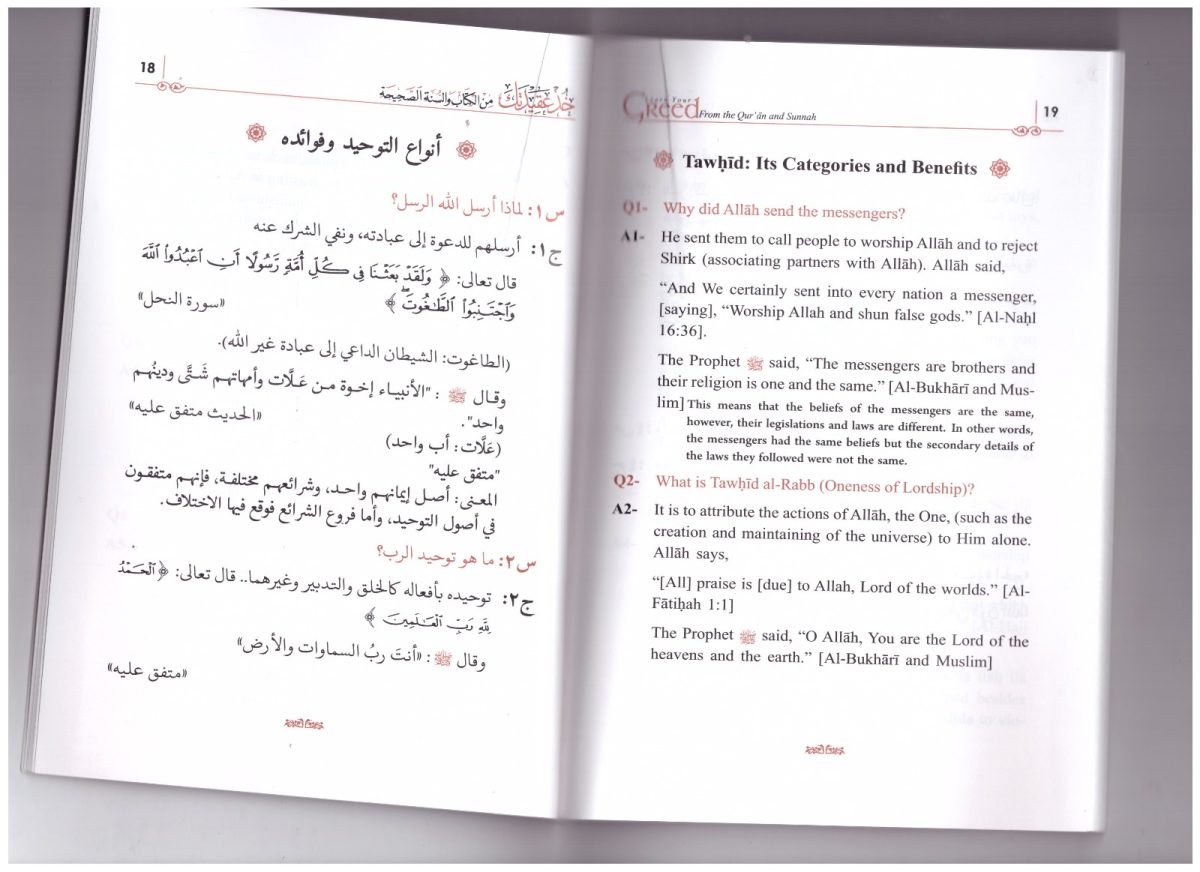 18
خذ عقيدتك من الكتاب والسنة الصحيحة
أنواع التوحيد وفوائده
س١: لماذا أرسل الله الرسل؟
ج١: أرسلهم للدعوة إلى عبادته، ونفي الشرك عنه
قال تعالى: ﴿ وَلَقَدْ بَعَثْنَا فِي كُلِّ أُمَّةٍ رَّسُولًا أَنِ ٱعْبُدُوا۟ ٱللَّهَ
وَٱجْتَنِبُوا۟ ٱلطَّٰغُوتَ ۖ ﴾
«سورة النحل»
(الطاغوت: الشيطان الداعي إلى عبادة غير الله).
وقال ﷺ : "الأنبياء إخوة من عَلَّات وأمهاتهم شَتَّى ودينُهم
واحد".
«الحديث متفق عليه»
(عَلَّات: أب واحد)
"متفق عليه"
المعنى: أصل إيمانهم واحد، وشرائعهم مختلفة، فإنهم متفقون
في أصول التوحيد، وأما فروع الشرائع فوقع فيها الاختلاف.
س٢: ما هو توحيد الرب؟
ج٢: توحيده بأفعاله كالخلق والتدبير وغيرهما.. قال تعالى: ﴿ٱلْحَمْدُ
لِلَّهِ رَبِّ ٱلْعَٰلَمِينَ ﴾
وقال ﷺ : «أنتَ ربُ السماوات والأرض»
«متفق عليه»
Learn Your
Creed From the Qur'ān and Sunnah
19
Tawḥīd: Its Categories and Benefits
Q1- Why did Allāh send the messengers?
A1- He sent them to call people to worship Allāh and to reject
Shirk (associating partners with Allāh). Allāh said,
“And We certainly sent into every nation a messenger,
[saying], “Worship Allah and shun false gods.” [Al-Naḥl
16:36].
The Prophet ﷺ said, “The messengers are brothers and
their religion is one and the same.” [Al-Bukhārī and Mus-
lim] This means that the beliefs of the messengers are the same,
however, their legislations and laws are different. In other words,
the messengers had the same beliefs but the secondary details of
the laws they followed were not the same.
Q2- What is Tawḥīd al-Rabb (Oneness of Lordship)?
A2- It is to attribute the actions of Allāh, the One, (such as the
creation and maintaining of the universe) to Him alone.
Allāh says,
“[All] praise is [due] to Allah, Lord of the worlds.” [Al-
Fātiḥah 1:1]
The Prophet ﷺ said, “O Allāh, You are the Lord of the
heavens and the earth.” [Al-Bukhārī and Muslim]